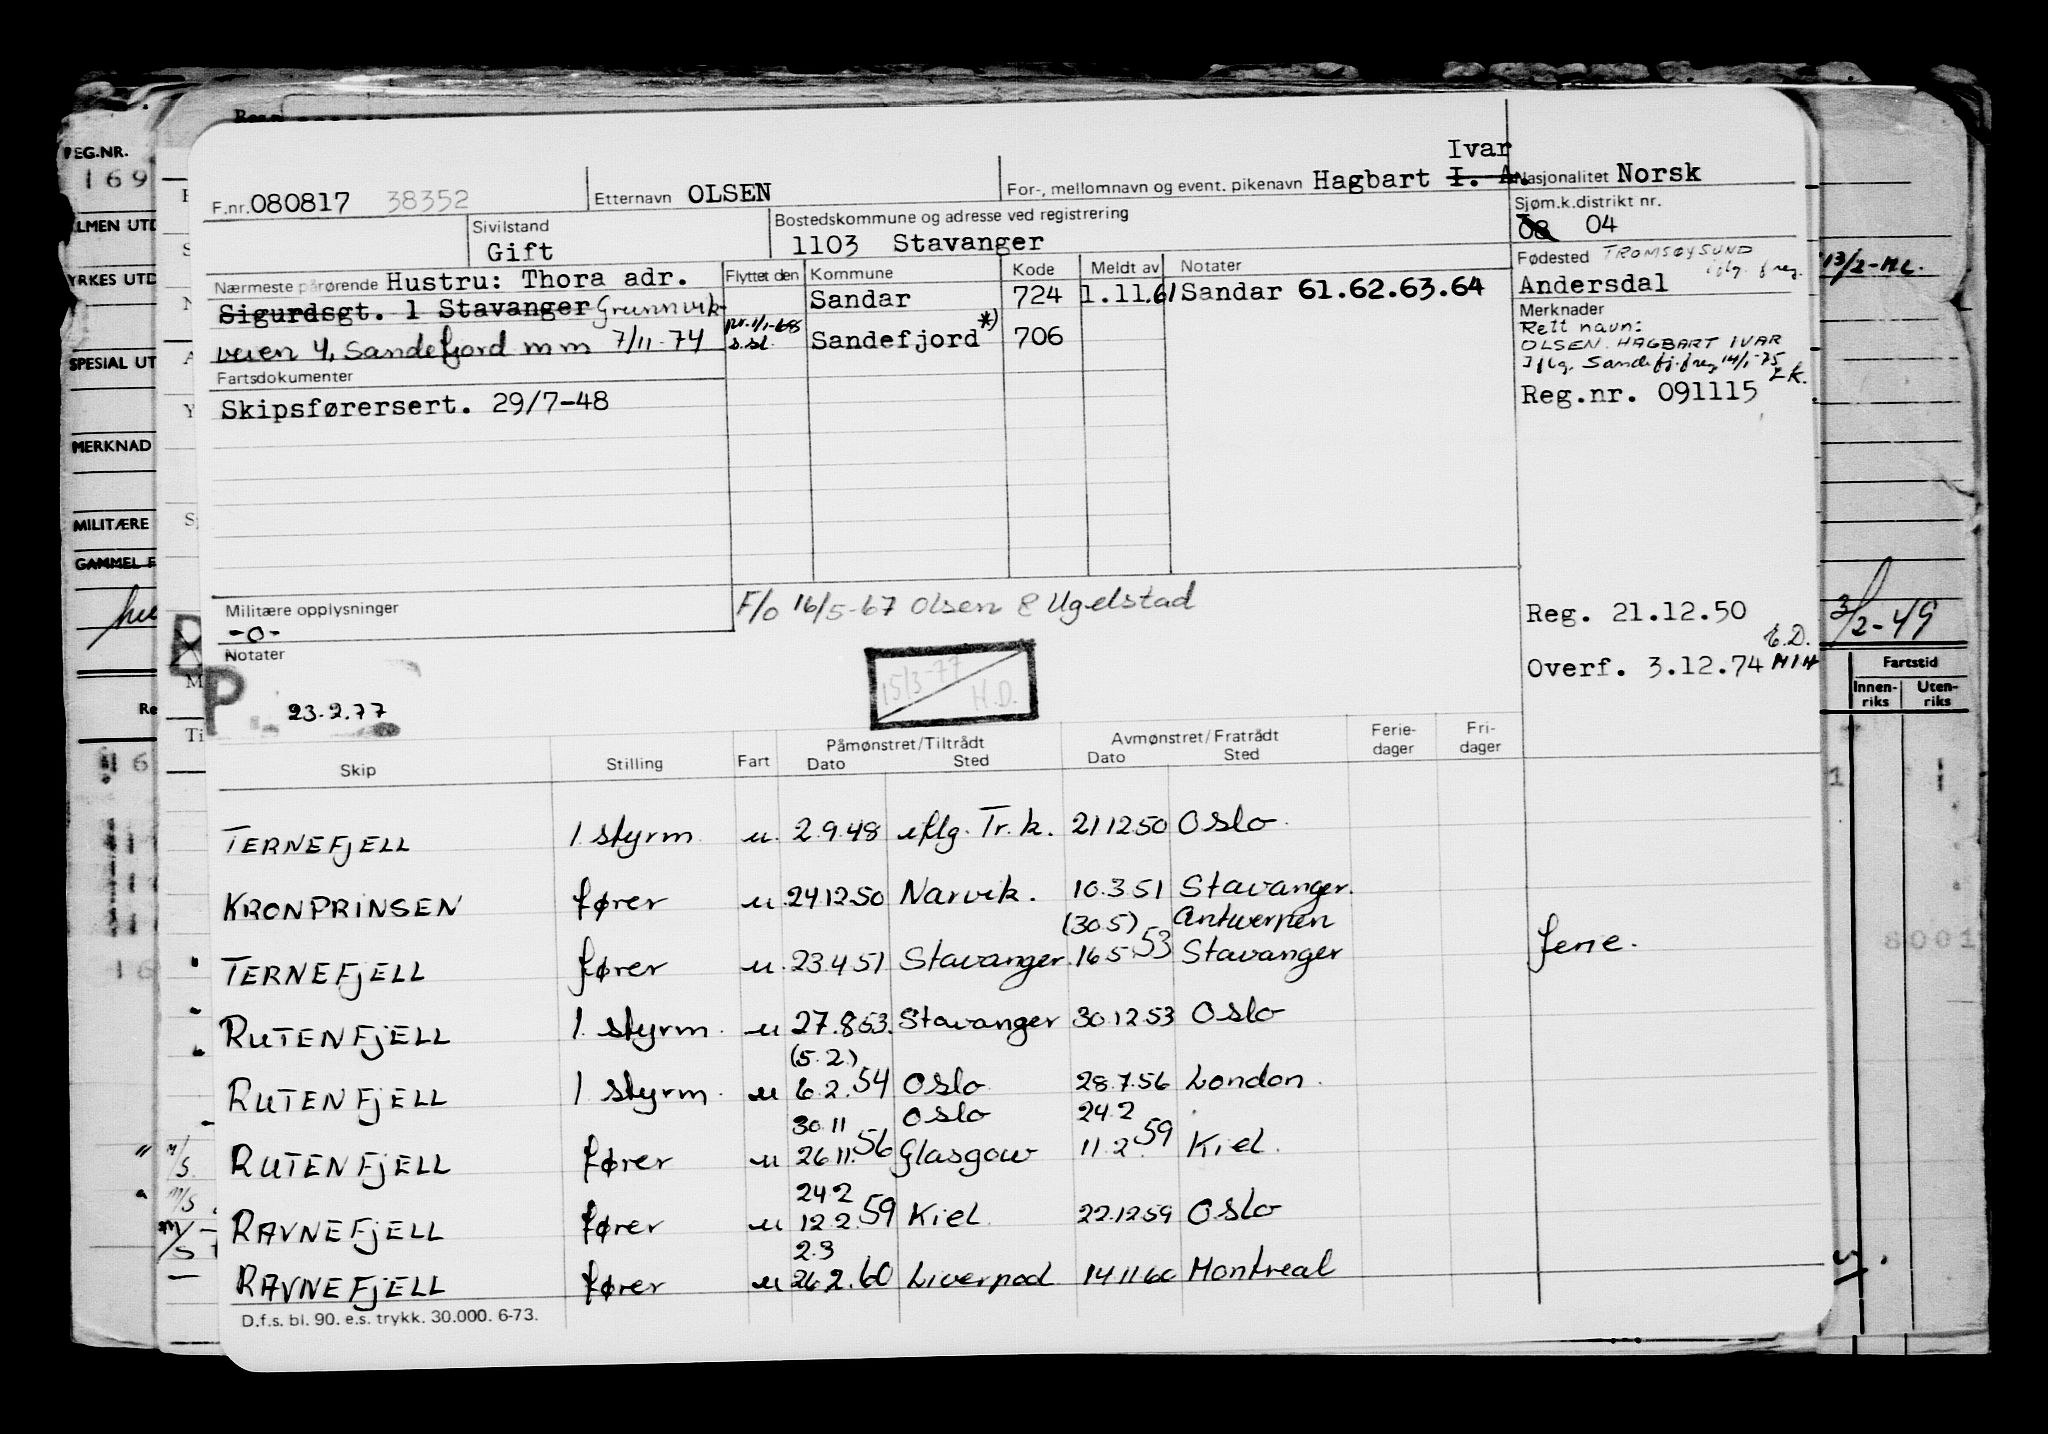 Ivar
F.nr. 080817 38352 Etternavn OLSEN For-, mellomnavn og event. pikenavn Hagbart I. A. Nasjonalitet Norsk
Sivilstand Gift
Bostedskommune og adresse ved registrering
1103 Stavanger
Sjøm.k.distrikt nr.
08 04
Nærmeste pårørende Hustru: Thora adr.
Sigurdsgt. 1 Stavanger Grunnvik-
veien 4, Sandefjord mm 7/11-74
Flyttet den Kommune Kode Meldt av Notater
Sandar 724 1.11.61 Sandar 61.62.63.64
pr. 1/1-68 s.sl. Sandefjord *) 706
Fødested TROMSØYSUND
iflg. freg.
Andersdal
Merknader
Rett navn:
OLSEN. HAGBART IVAR
Iflg. Sandefj.freg 14/1-75
E.K.
Reg.nr. 091115
Fartsdokumenter
Skipsførersert. 29/7-48
Militære opplysninger
-0-
F/o 16/5-67 Olsen & Ugelstad
Reg. 21.12.50
E.D.
Overf. 3.12.74 HIH
Notater
P
23.2.77
15/3-77
H.D.
Skip Stilling Fart Påmønstret/Tiltrådt Dato Sted Avmønstret/Fratrådt Dato Sted Ferie-dager Fri-dager
TERNEFJELL 1 styrm. u. 2.9.48 iflg. Tr.k. 21 12 50 Oslo.
KRONPRINSEN fører u. 24 12 50 Narvik. 10.3.51 Stavanger.
(30.5) Antwerpen
TERNEFJELL fører u. 23.4 51 Stavanger. 16 5 53 Stavanger ferie.
RUTENFJELL 1. styrm. u 27.8.53. Stavanger 30.12 53 Oslo
(5.2.)
RUTENFJELL 1 styrm. u 6.2.54 Oslo 28.7.56 London.
30 11 Oslo 24.2
RUTENFJELL fører u 26 11.56 Glasgow 11.2.59 Kiel.
24 2
RAVNEFJELL fører u 12.2.59 Kiel. 22.12 59 Oslo
2.3
RAVNEFJELL fører u 26.2.60 Liverpool 14 11 60 Montreal
D.f.s. bl. 90. e.s. trykk. 30.000. 6-73.
REG.NR.
169
ALMEN UTD
YRKES UTD
SPESIAL UT
MERKNAD
MILITÆRE
GAMMEL F
13/2-
3/2-49
Fartstid
Innen-riks Uten-riks